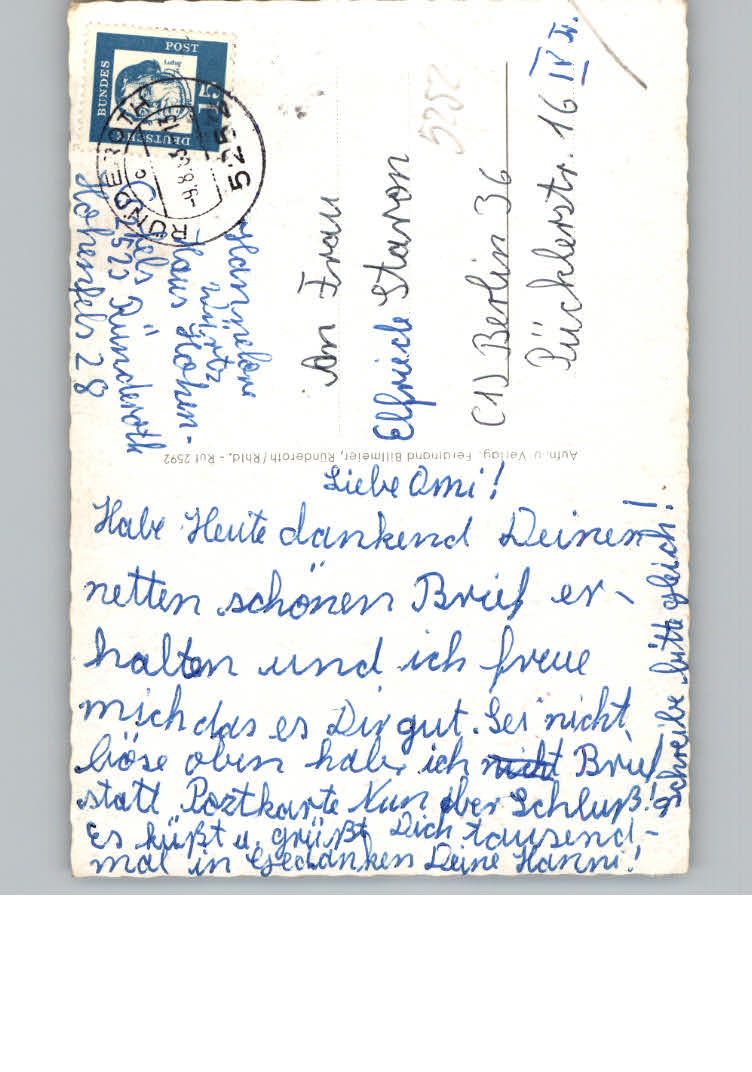 Liebe Omi!
Habe Heute dankend Deinen
netten schönen Brief er-
halten und ich freue
mich das es Dir gut. Sei nicht
böse oben habe ich nicht Brief
statt Postkarte Nun aber Schluß!
Es küßt u. grüßt Dich tausend-
mal in Gedanken Deine Hanni!
Schreibe bitte gleich!
Aufn. u. Verlag: Ferdinand Billmeier, Ründeroth/Rhld. - Ruf 2592
An Frau
Elfriede Staron
(1) Berlin 36
Pücklerstr. 16 IV
5252
Hannelore
Haus Hohen-
fels
5252 Ründeroth
Hohenfels 28
DEUTSCHE
BUNDES
POST
15
Luther
RÜNDEROTH
5252